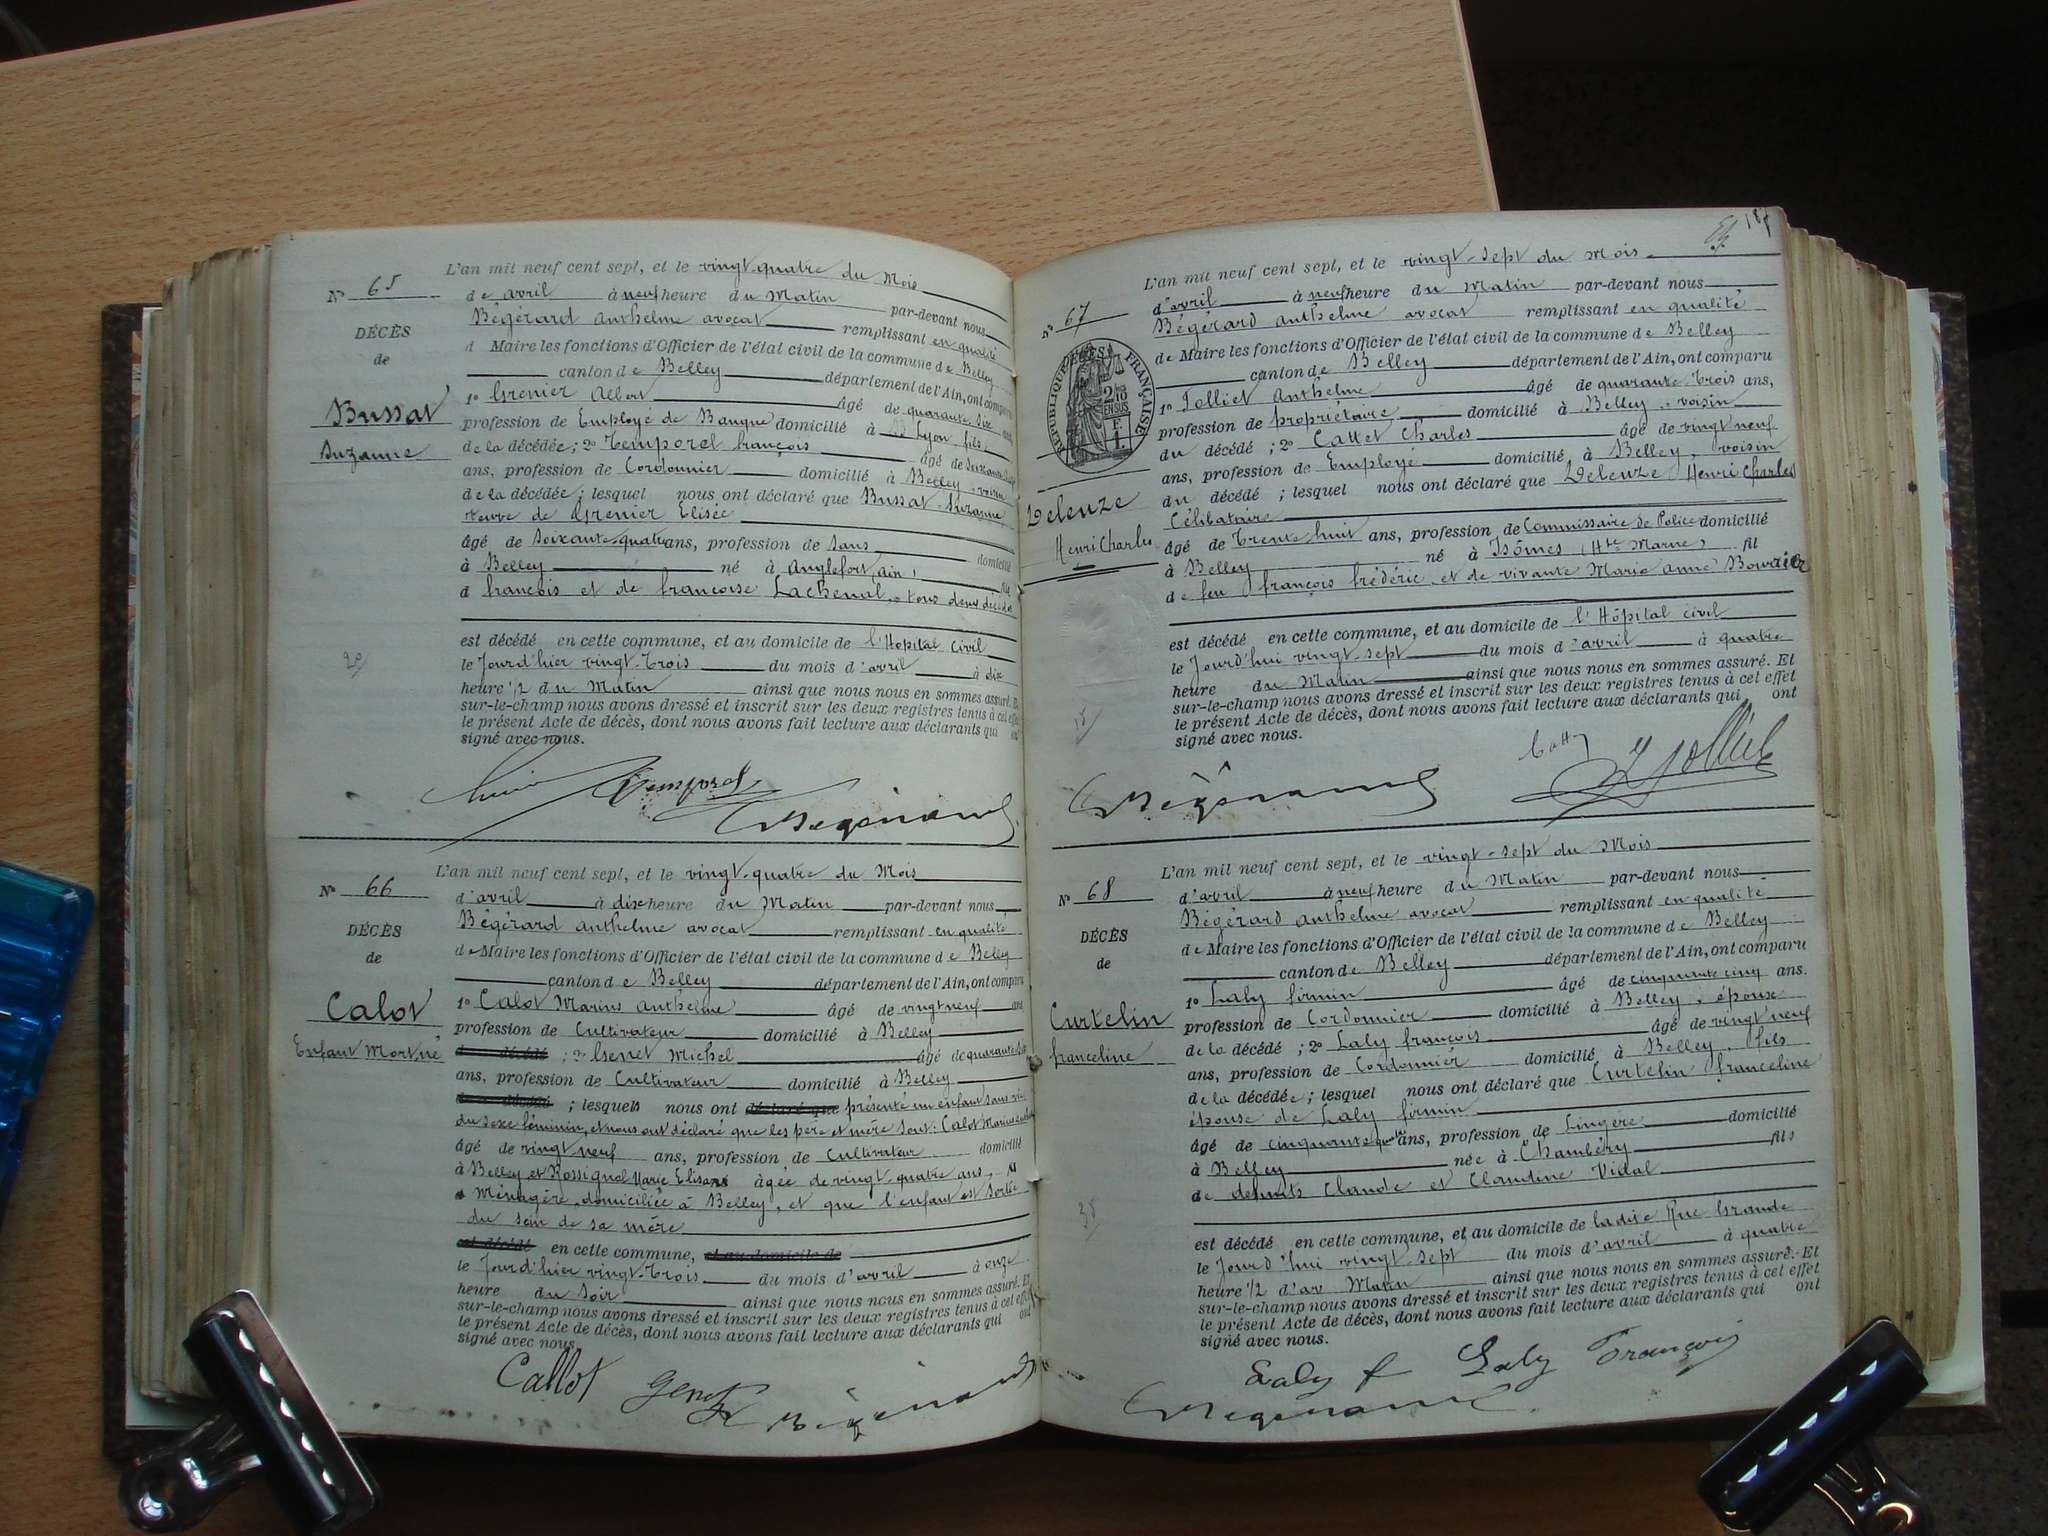 L'an mil neuf cent sept, et le vingt-quatre du Mois
N° 65
de avril à neuf heure du Matin par-devant nous
Bégérard Anthelme avocat remplissant en qualité
DÉCÈS
d Maire les fonctions d'Officier de l'état civil de la commune de Belley
de
canton de Belley département de l'Ain, ont comparu
Bussat
Suzanne
1° Grenier Albert âgé de quarante six ans,
profession de Employé de Banque domicilié à Lyon, fils
de la décédée ; 2° Temporel françois âgé de
ans, profession de Cordonnier domicilié à Belley, voisin
de la décédée ; lesquel nous ont déclaré que Bussat Suzanne
veuve de Grenier Elisée
âgé de Soixante-quatre ans, profession de Sans domicilié
à Belley né à Anglefort, Ain, fil
d françois et de françoise Lachenal, tous deux décédés
est décédé en cette commune, et au domicile de l'Hopital civil
le Jourd'hier vingt-trois du mois d'avril à dix
heure 1/2 du Matin ainsi que nous nous en sommes assuré. Et
sur-le-champ nous avons dressé et inscrit sur les deux registres tenus à cet effet
le présent Acte de décès, dont nous avons fait lecture aux déclarants qui ont
signé avec nous.
Temporel
Bégérard
L'an mil neuf cent sept, et le vingt-quatre du Mois
N° 66
d'avril à dix heure du Matin par-devant nous
Bégérard Anthelme avocat remplissant en qualité
DÉCÈS
de Maire les fonctions d'Officier de l'état civil de la commune de Belley
de
canton de Belley département de l'Ain, ont comparu
Calot
Enfant Mort né
1° Calot Marius Anthelme âgé de vingt neuf ans
profession de Cultivateur domicilié à Belley
décédé ; 2° Genet Michel âgé de quarante
ans, profession de Cultivateur domicilié à Belley
décédé ; lesquels nous ont déclaré que présenté un enfant sans vie
du sexe féminin, et nous ont déclaré que les père et mère sont : Calot Marius
âgé de vingt neuf ans, profession de Cultivateur domicilié
à Belley et Rossignol Marie Elisa âgée de vingt-quatre ans
Ménagère, domiciliée à Belley, et que l'enfant est sortie
du sein de sa mère
est décédé en cette commune, et au domicile de
le Jourd'hier vingt-trois du mois d'avril à onze
heure du Soir ainsi que nous nous en sommes assuré. Et
sur-le-champ nous avons dressé et inscrit sur les deux registres tenus à cet effet
le présent Acte de décès, dont nous avons fait lecture aux déclarants qui ont
signé avec nous.
Callot Genet Bégérard
L'an mil neuf cent sept, et le vingt-sept du Mois
N° 67
d'avril à neuf heure du Matin par-devant nous
Bégérard Anthelme avocat remplissant en qualité
de Maire les fonctions d'Officier de l'état civil de la commune de Belley
canton de Belley département de l'Ain, ont comparu
DÉCÈS
RÉPUBLIQUE FRANÇAISE
2/10 EN SUS
F 1.
Deleuze
Henri Charles
1° Jolliet Anthelme âgé de quarante-trois ans,
profession de propriétaire domicilié à Belley, voisin
du décédé ; 2° Cattet Charles âgé de vingt neuf
ans, profession de Employé domicilié à Belley, voisin
du décédé ; lesquel nous ont déclaré que Deleuze Henri Charles
Célibataire
âgé de Trente huit ans, profession de Commissaire de Police domicilié
à Belley né à Isômes (Hte Marne) fil
de feu françois frédéric, et de vivante Marie Anne Bourrier
est décédé en cette commune, et au domicile de l'Hôpital civil
le Jourd'hui vingt-sept du mois d'avril à quatre
heure du Matin ainsi que nous nous en sommes assuré. Et
sur-le-champ nous avons dressé et inscrit sur les deux registres tenus à cet effet
le présent Acte de décès, dont nous avons fait lecture aux déclarants qui ont
signé avec nous.
Bégérard Jolliet
L'an mil neuf cent sept, et le vingt-sept du Mois
N° 68
d'avril à neuf heure du Matin par-devant nous
Bégérard Anthelme avocat remplissant en qualité
DÉCÈS
de Maire les fonctions d'Officier de l'état civil de la commune de Belley
de
canton de Belley département de l'Ain, ont comparu
Curtelin
franceline
1° Laly firmin âgé de cinquante cinq ans.
profession de Cordonnier domicilié à Belley, époux
de la décédé ; 2° Laly françois âgé de vingt neuf
ans, profession de Cordonnier domicilié à Belley, fils
de la décédée ; lesquel nous ont déclaré que Curtelin franceline
épouse de Laly firmin
âgé de cinquante quatre ans, profession de Lingère domicilié
à Belley née à Chambéry fils
de defunts Claude et Claudine Vidal
est décédé en cette commune, et au domicile de ladite Rue Grande
le Jourd'hui vingt-sept du mois d'avril à quatre
heure 1/2 d'au Matin ainsi que nous nous en sommes assuré. Et
sur-le-champ nous avons dressé et inscrit sur les deux registres tenus à cet effet
le présent Acte de décès, dont nous avons fait lecture aux déclarants qui ont
signé avec nous.
Laly f Laly François
Bégérard